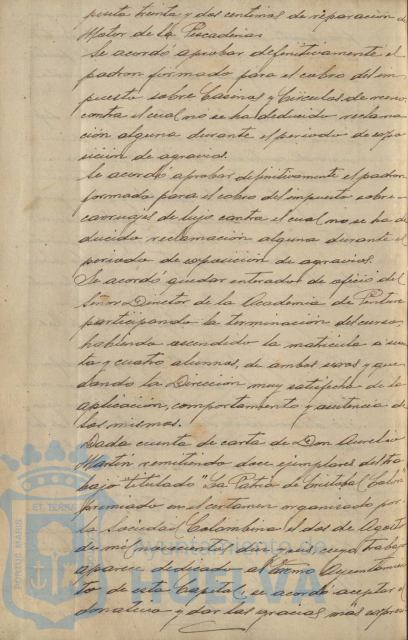 peseta treinta y dos centimos de reparacion de
Motor de la Pescaderia.
Se acordó aprobar definitivamente el
padron formado para el cobro del im-
puesto sobre Casinos y Círculos de recreo
contra el cual no se ha deducido reclama-
ción alguna durante el periodo de expo
sición de agravios.
Se acordó aprobar definitivamente el padron
formado para el cobro del impuesto sobre
carruajes de lujo contra el cual no se ha de
ducido reclamación alguna durante el
periodo de exposición de agravios.
Se acordó quedar enterados de oficio del
Señor Director de la Academia de Pintura
participando la terminación del curso,
habiendo ascendido la matricula a
ta y cuatro alumnos, de ambos sexos y que
dando la Dirección muy satisfecha de la
aplicación, comportamiento y asistencia de
los mismos.
Dada cuenta de carta de Don Aurelio
Martin remitiendo doce ejemplares del tra
bajo titulado "La Patria de Cristobal Colón"
premiado en el certamen organizado por
la Sociedad Colombina el dos de Agosto
de mil novecientos diez y seis cuyo trabajo
aparece dedicado al Excmo Ayuntamien
to de esta Capital, se acordó aceptar el
donativo y dar las gracias más expresi
PORTUS MARIS ET TERRAE
Ayuntamiento de
HUELVA